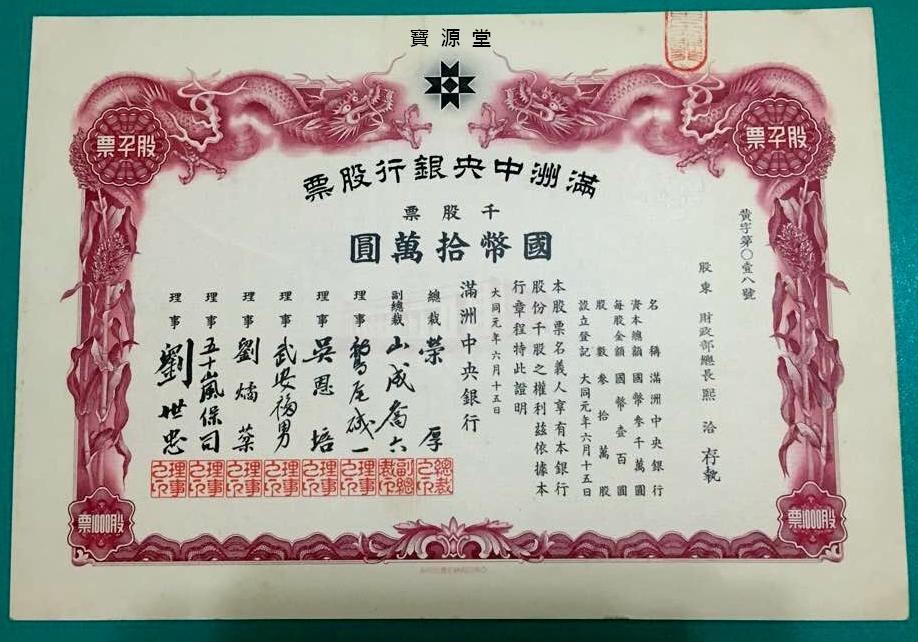 寶源堂
股千票
股千票
滿洲中央銀行股票
千股票
國幣拾萬圓
黃字第〇壹八號
股東 財政部總長熙洽存執
名稱 滿洲中央銀行
資本總額 國幣參千萬圓
每股金額 國幣壹百圓
股數 參拾萬股
設立登記 大同元年六月十五日
本股票名義人享有本銀行
股份千股之權利茲依據本
行章程特此證明
大同元年六月十五日
滿洲中央銀行
總裁 榮厚
副總裁 山成喬六
理事 鷲尾磯一
理事 吳恩培
理事 武安福男
理事 劉燏棻
理事 五十嵐保司
理事 劉世忠
總裁之印
副總裁印
理事之印
理事之印
理事之印
理事之印
理事之印
理事之印
股1000票
股1000票